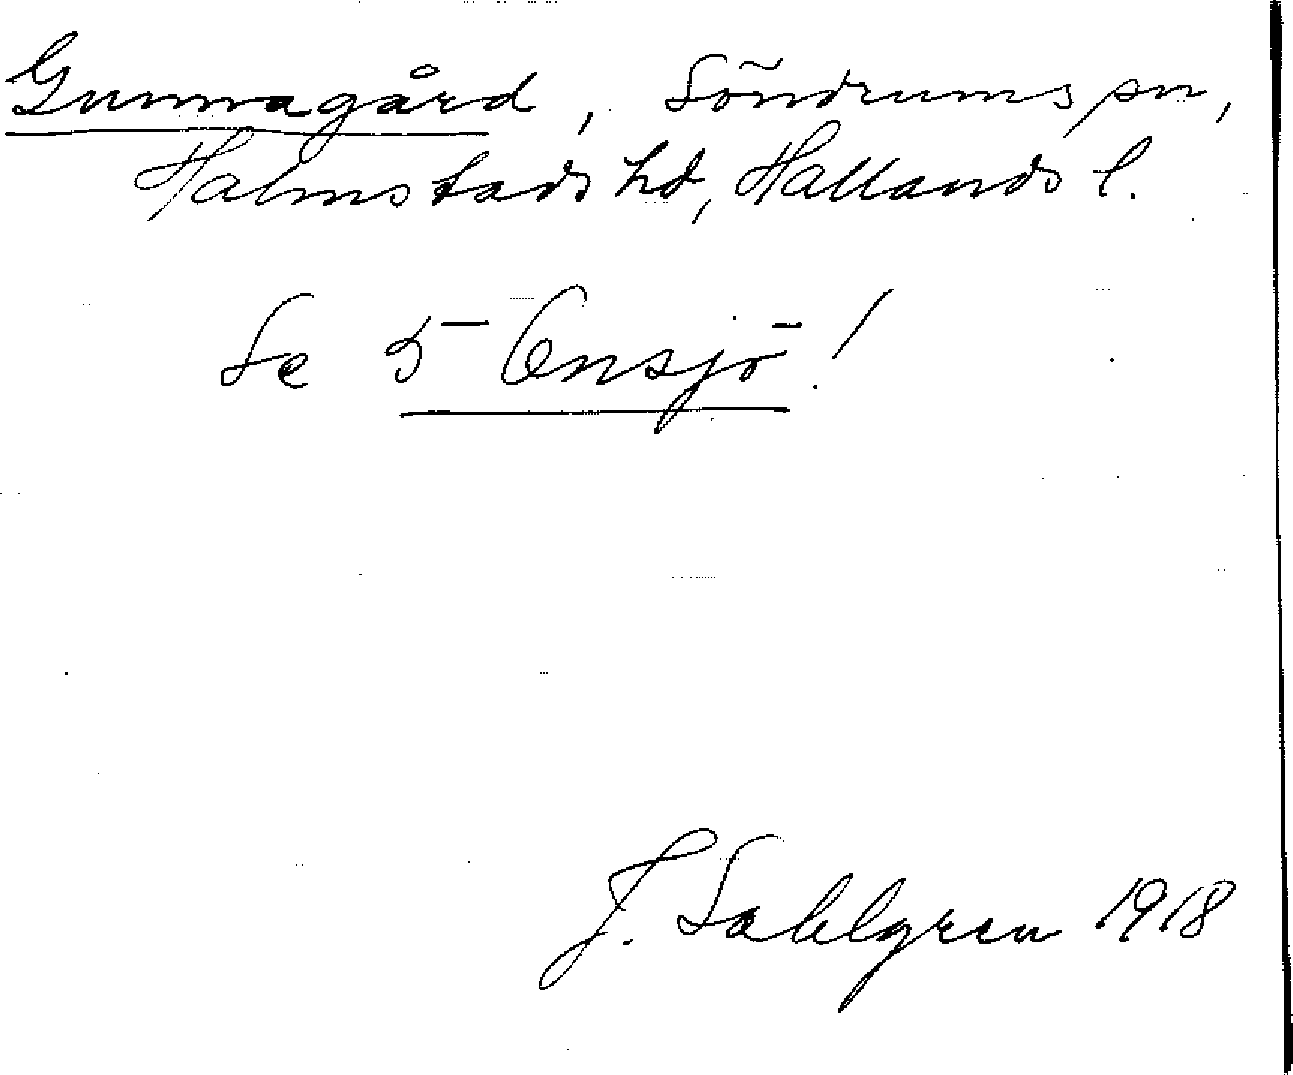 Gunnagård, Söndrums sn,
Halmstads hd, Hallands l.
Se 5 Onsjö!
J. Sahlgren 1918